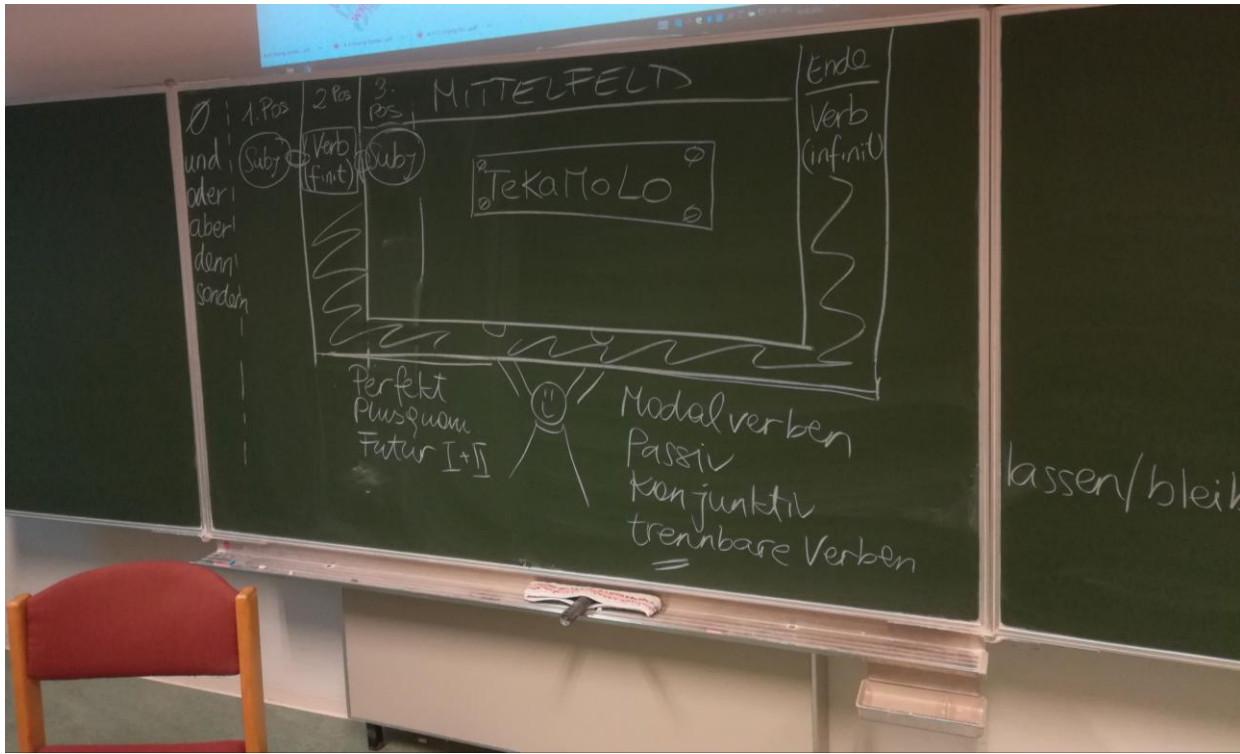 Ø
und
oder
aber
denn
sondern
1. Pos
Subj
2 Pos
Verb
(finit)
3.
Pos
Subj
MITTELFELD
TeKaMoLo
Ende
Verb
(infinit)
Perfekt
Plusquam.
Futur I+II
Modalverben
Passiv
Konjunktiv
trennbare Verben
lassen/bleib